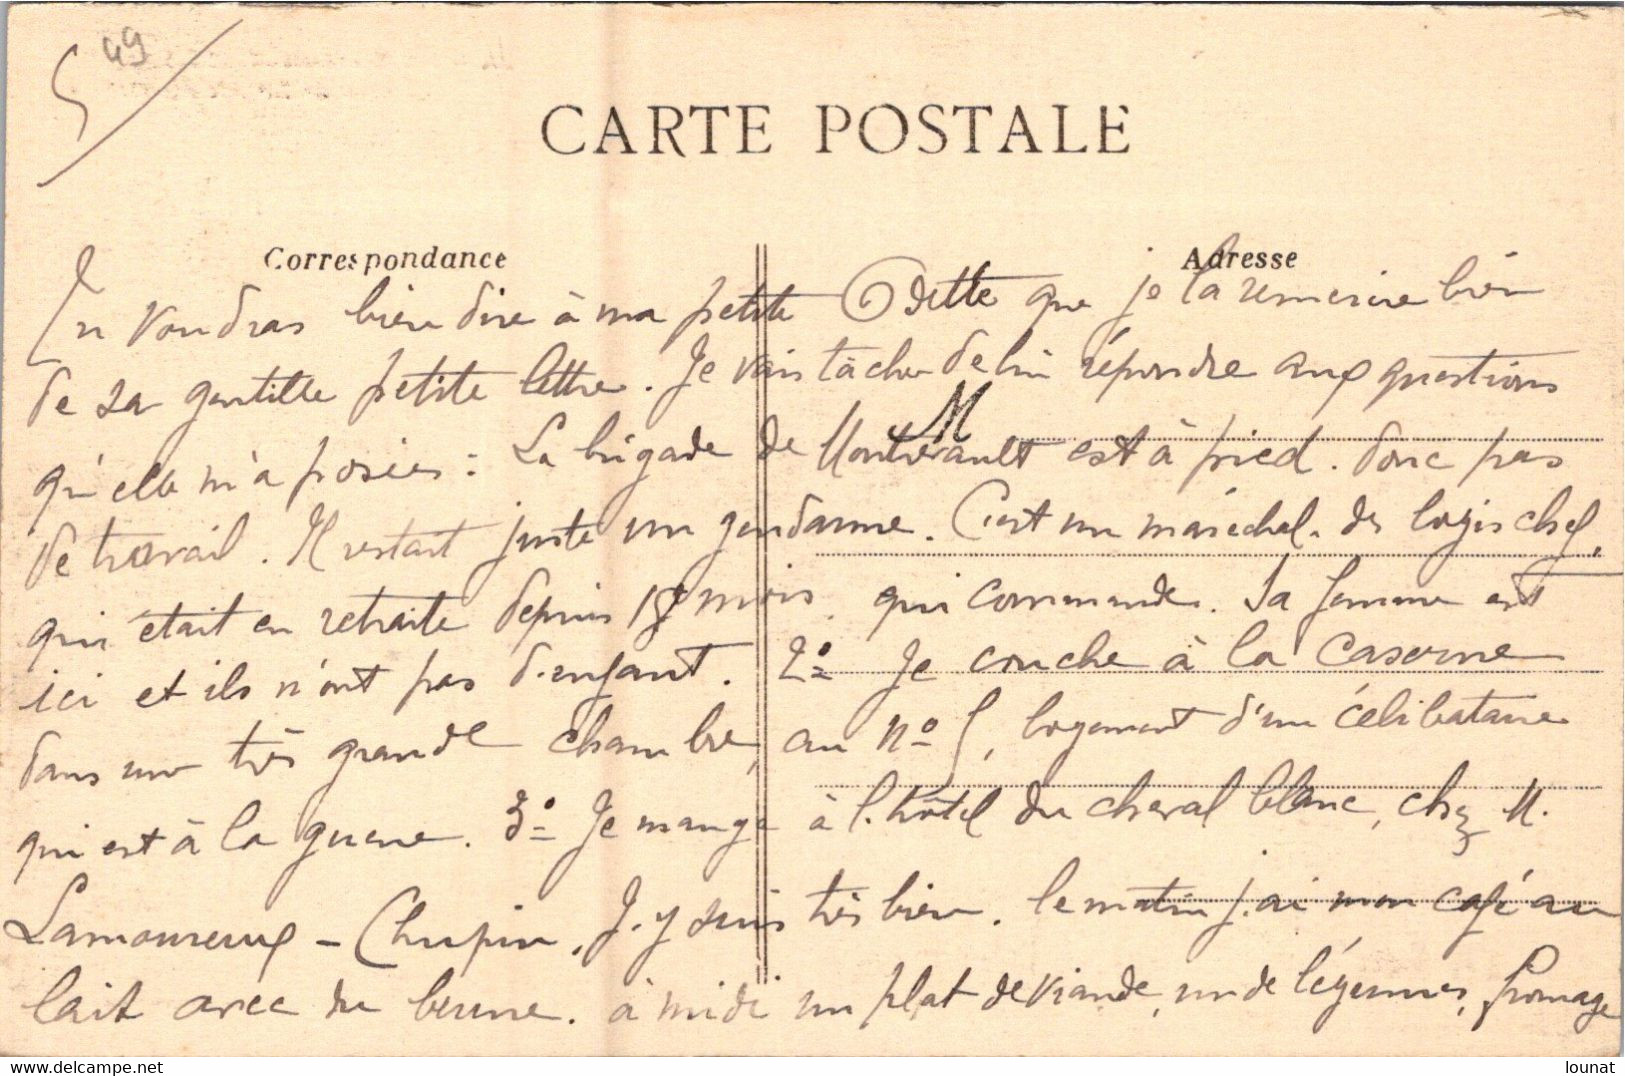 49
5
CARTE POSTALE
Correspondance
Adresse
Tu voudras bien dire à ma petite Odette que je la remercie bien
de sa gentille petite lettre. Je vais tâcher de lui répondre aux questions
qu'elle m'a posées : La brigade de Montrevault est à pied. donc pas
M
de travail. Il restait juste un gendarme. C'est un maréchal-des logis chef,
qui était en retraite depuis 18 mois qui commande. Sa femme est
ici et ils n'ont pas d'enfant. 2º Je couche à la caserne
dans une très grande chambre, au nº 5, logement d'un célibataire
qui est à la guerre. 3º Je mange à l'hôtel du cheval blanc, chez M.
Lamoureux - Chupin. J'y suis très bien. le matin j'ai mon café au
lait avec du beurre. à midi un plat de viande, un de légumes, fromage
lounat
delcampe.net